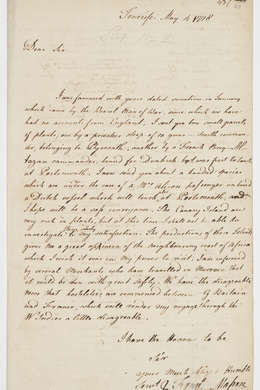 Teneriffe May 4 1778
Dear Sir
I was favoured with yours dated sometime in January
which came by the Man of War, since which we have
had no accounts from England, I sent you two small parcels
of plants, one by a
belonging to Plymouth, another by a French Brig Mr.
commander, bound for Dunkirk but was first to touch
at Portsmouth. I now send you about a hundred species
which are under the care of a Mr. passenger on board
a Dutch vessel which will touch at Portsmouth, and
I hope will be a safe conveyance. The Canary Islands are
very rich in plants, but at this time I shall not be able to
investigate them to my satisfaction. The productions of these Islands
gives me a great opinion of the neighbouring coast of Africa
which I wish it was in my power to visit. I am informed
by several Merchants who have travelled in Morocco that
it could be done with great safety. We have the disagreeable
news that hostilities are commenced between G. Britain
and France, which will render my voyage through the
W. Indies a little disagreeable.
I have the Honour to be
Sir
your Much Oblig'd Humble
Serv.t Masson